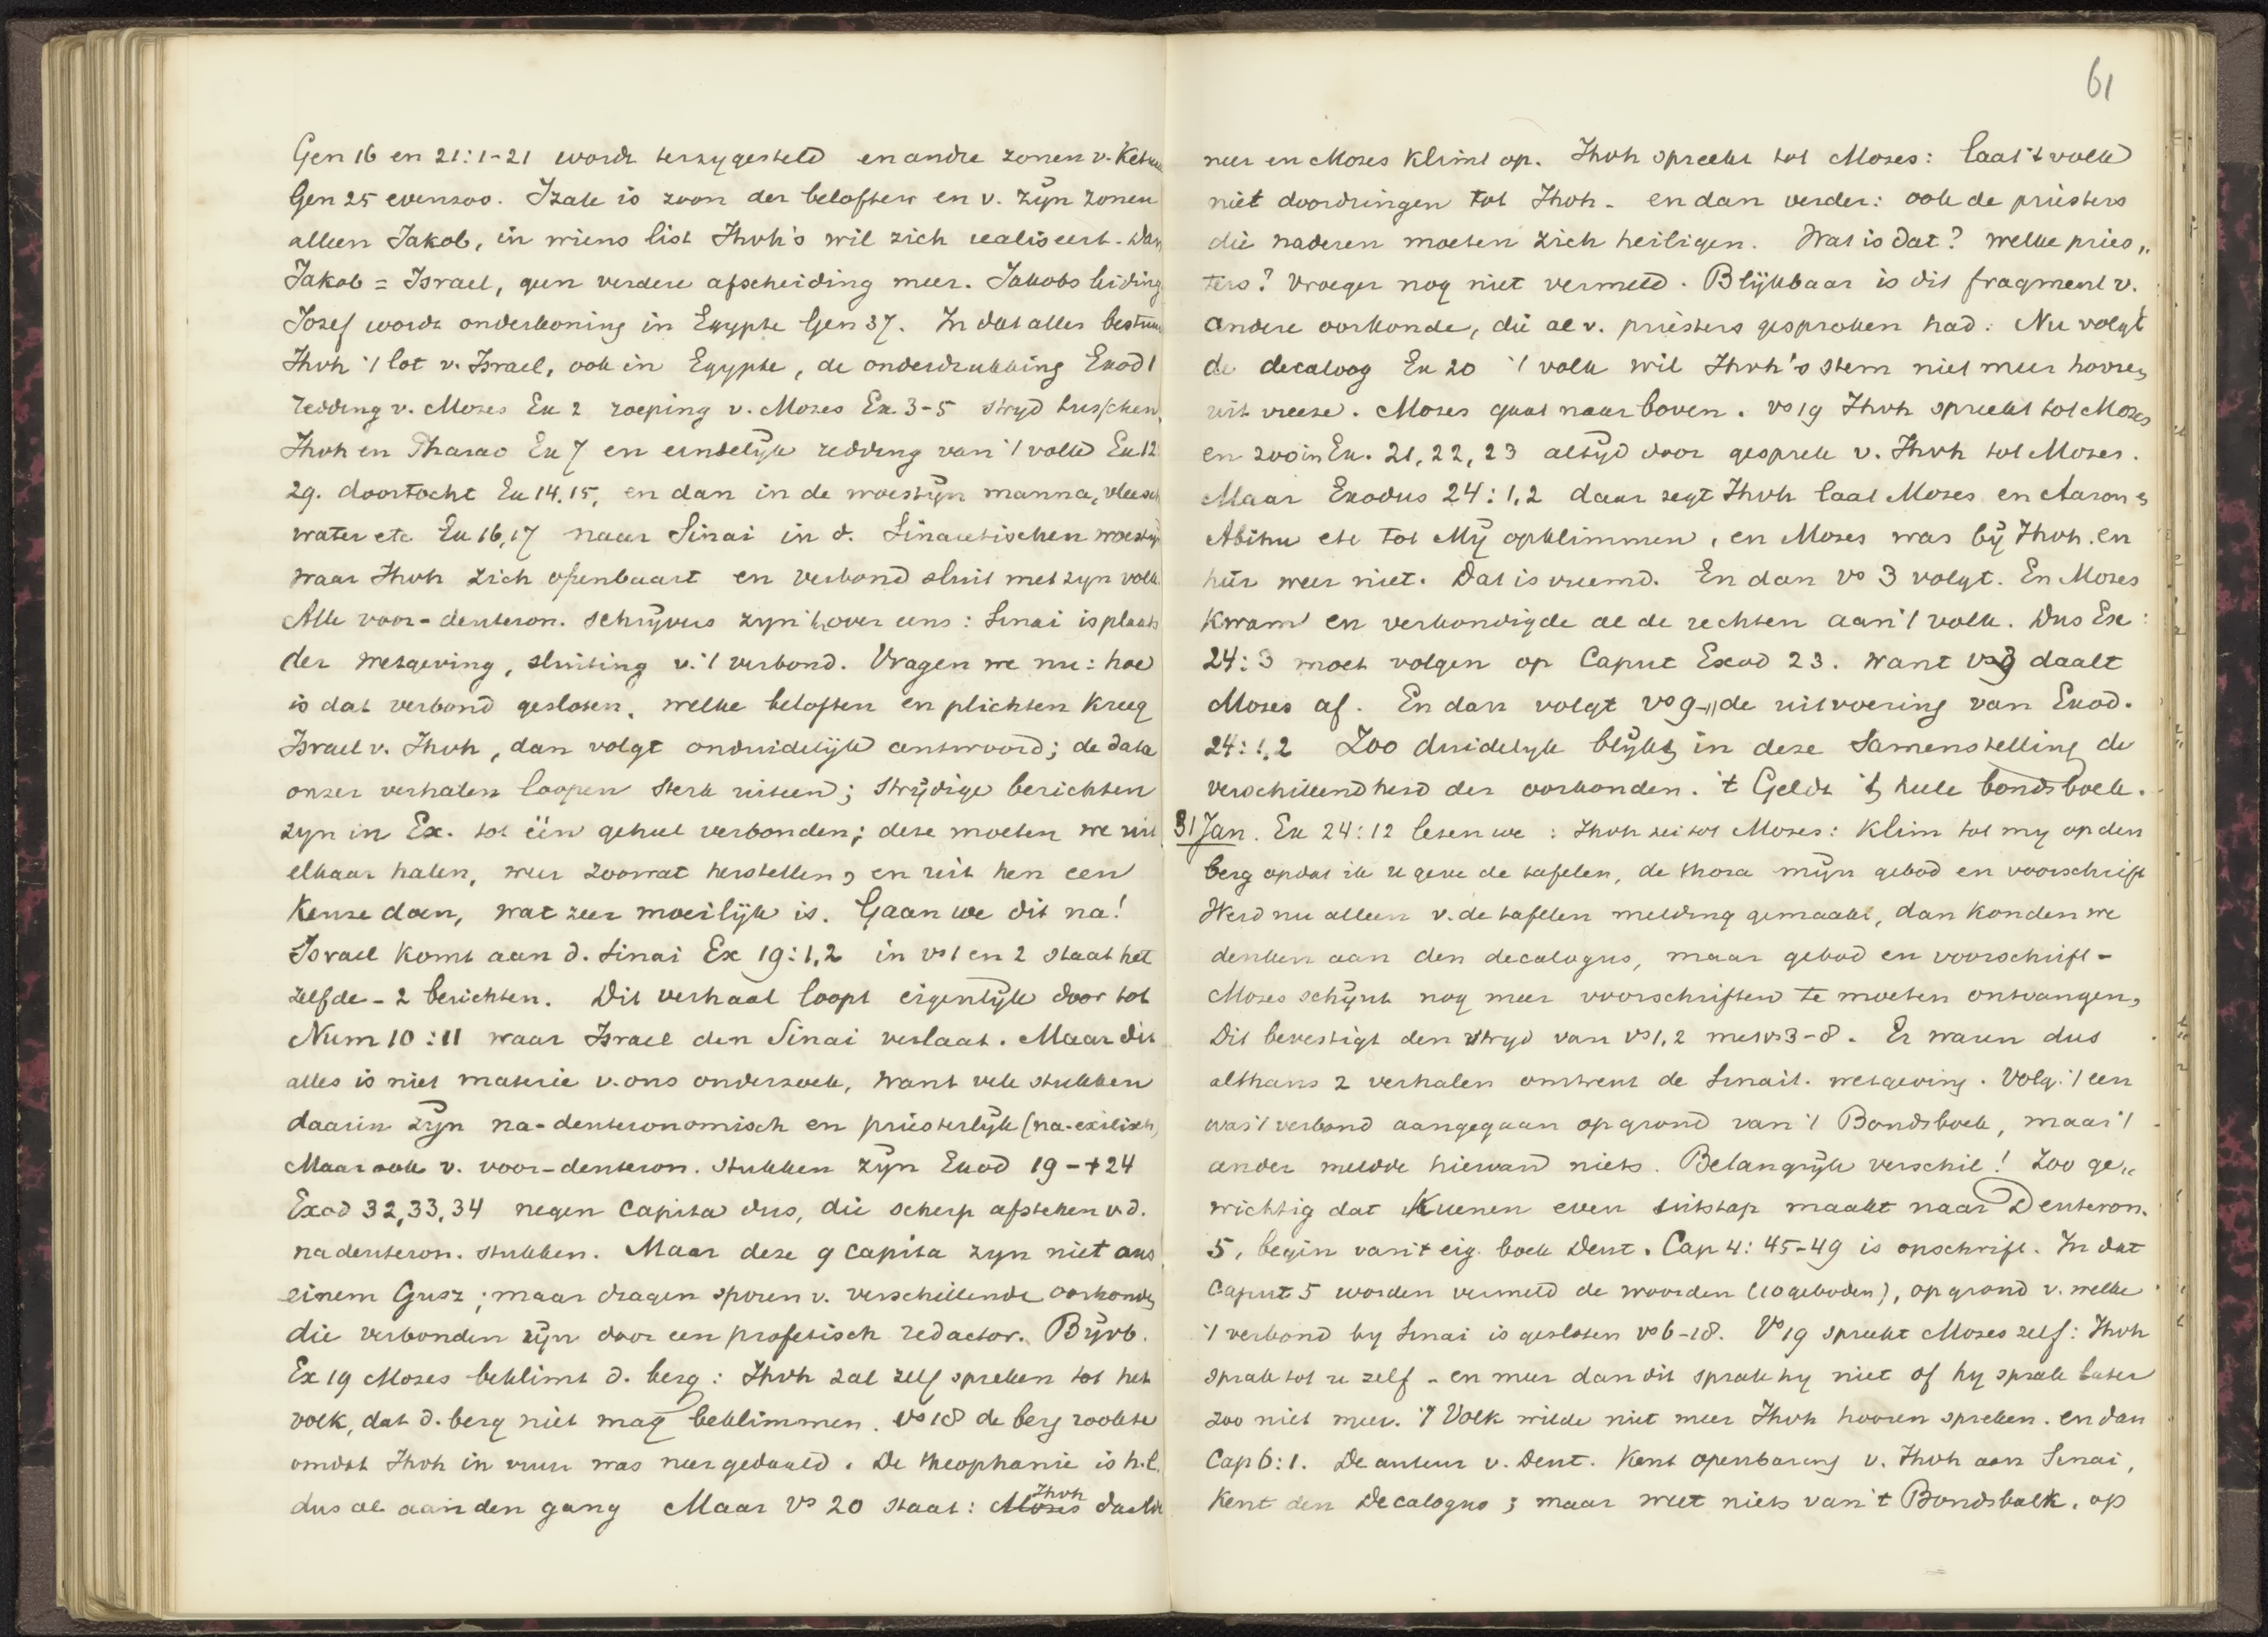 Gen 16 en 21:1-21 wordt terzygesteld en andre zonen v. Ketura
Gen 25 evenzoo. Izak is zoon der beloften en v. zijn zonen
alleen Jakob, in wiens list Jhvh's wil zich realiseert. Dan
Jakob = Israel, geen verdere afscheiding meer. Jakobs leiding
Jozef wordt onderkoning in Egypte Gen 37. In dat alles bestuur
Jhvh 't lot v. Israel, ook in Egypte, de onderdrukking Exod 1
redding v. Mozes Ex 2 roeping v. Mozes Ex. 3-5 stryd tusschen
Jhvh en Pharao Ex 7 en eindelijk redding van 't volk Ex 12
29. doortocht Ex 14.15, en dan in de woestijn manna, vleesch
water etc Ex 16,17 naar Sinai in d. Sinaietischen woestijn
waar Jhvh zich openbaart en verbond sluit met zyn volk.
Alle voor-deuteron. schrijvers zyn 't hierover eens: Sinai is plaats
der wetgeving, sluiting v. 't verbond. Vragen we nu: hoe
is dat verbond gesloten, welke beloften en plichten kreeg
Israel v. Jhvh, dan volgt onduidelijk antwoord; de data
onzer verhalen loopen sterk uiteen; strijdige berichten
zyn in Ex. tot één geheel verbonden; deze moeten we uit
elkaar halen, weer zoowat herstellen, en uit hen een
keuze doen, wat zeer moeilijk is. Gaan we dit na!
Israel komt aan d. Sinai Ex 19:1,2 in vs 1 en 2 staat het
zelfde - 2 berichten. Dit verhaal loopt eigenlijk door tot
Num 10:11 waar Israel den Sinai verlaat. Maar dit
alles is niet materie v. ons onderzoek, want vele stukken
daarin zijn na-deuteronomisch en priesterlijk (na-exilisch)
Maar ook v. voor-deuteron. stukken zijn Exod 19-+24
Exod 32,33,34 negen capita dus, die scherp afsteken v d.
nadeuteron. stukken. Maar deze 9 capita zyn niet aus
einem Gusz; maar dragen sporen v. verschillende oorkonden
die verbonden zijn door een profetisch redactor. Bijvb.
Ex 19 Mozes beklimt d. berg: Jhvh zal zelf spreken tot het
volk, dat d. berg niet mag beklimmen. vs 18 de berg rookte
omdat Jhvh in vuur was neergedaald. De theophanie is h.l.
dus al aan den gang Maar vs 20 staat: Moses Jhvh daalde
61
neer en Mozes klimt op. Jhvh spreekt tot Mozes: laat 't volk
niet doordringen tot Jhvh - en dan verder: ook de priesters
die naderen moeten zich heiligen. Wat is dat? welke pries„
ters? Vroeger nog niet vermeld. Blijkbaar is dit fragment v.
andere oorkonde, die al v. priesters gesproken had. Nu volgt
de decaloog Ex 20 't volk wil Jhvh's stem niet meer hooren
uit vreeze. Mozes gaat naar boven. vs 19 Jhvh spreekt tot Mozes
en zoo in Ex. 21, 22, 23 altijd door gesprek v. Jhvh tot Mozes.
Maar Exodus 24:1,2 daar zegt Jhvh laat Mozes en Aaron en
Abihu etc tot Mij opklimmen, en Mozes was bij Jhvh. en
hier weer niet. Dat is vreemd. En dan vs 3 volgt. En Mozes
kwam en verkondigde al de rechten aan 't volk. Dus Exe:
24:3 moet volgen op Caput Exod 23. want vs 3 daalt
Mozes af. En dan volgt vs 9-11 de uitvoering van Exod.
24:1,2 Zoo duidelyk blijkt in deze samenstelling de
verschillendheid der oorkonden. 't Geldt 't heele bondsboek.
31 Jan. Ex 24:12 lezen we: Jhvh zei tot Mozes: klim tot my op den
berg opdat ik u geve de tafelen, de thora mijn gebod en voorschrift
Werd nu alleen v. de tafelen melding gemaakt, dan konden we
denken aan den decalogus, maar gebod en voorschrift -
Mozes schijnt nog meer voorschriften te moeten ontvangen,
Dit bevestigt den stryd van vs 1,2 met vs 3-8. Er waren dus
althans 2 verhalen omtrent de Sinait. wetgeving. Volg. 't een
was 't verbond aangegaan op grond van 't Bondsboek, maar 't
ander meldde hiervan niets. Belangrijk verschil! Zoo ge„
wichtig dat Kuenen even uitstap maakt naar Deuteron.
5, begin van 't eig. boek Deut. Cap 4:45-49 is opschrift. In dat
Caput 5 worden vermeld de woorden (10 geboden), op grond v. welke
't verbond by Sinai is gesloten vs 6-18. Vs 19 spreekt Mozes zelf: Jhvh
sprak tot u zelf - en meer dan dit sprak hy niet of hy sprak later
zoo niet meer. 't Volk wilde niet meer Jhvh hooren spreken. en dan
Cap 6:1. De auteur v. Deut. kent openbaring v. Jhvh aan Sinai,
kent den Decalogus; maar weet niets van 't Bondsboek. op